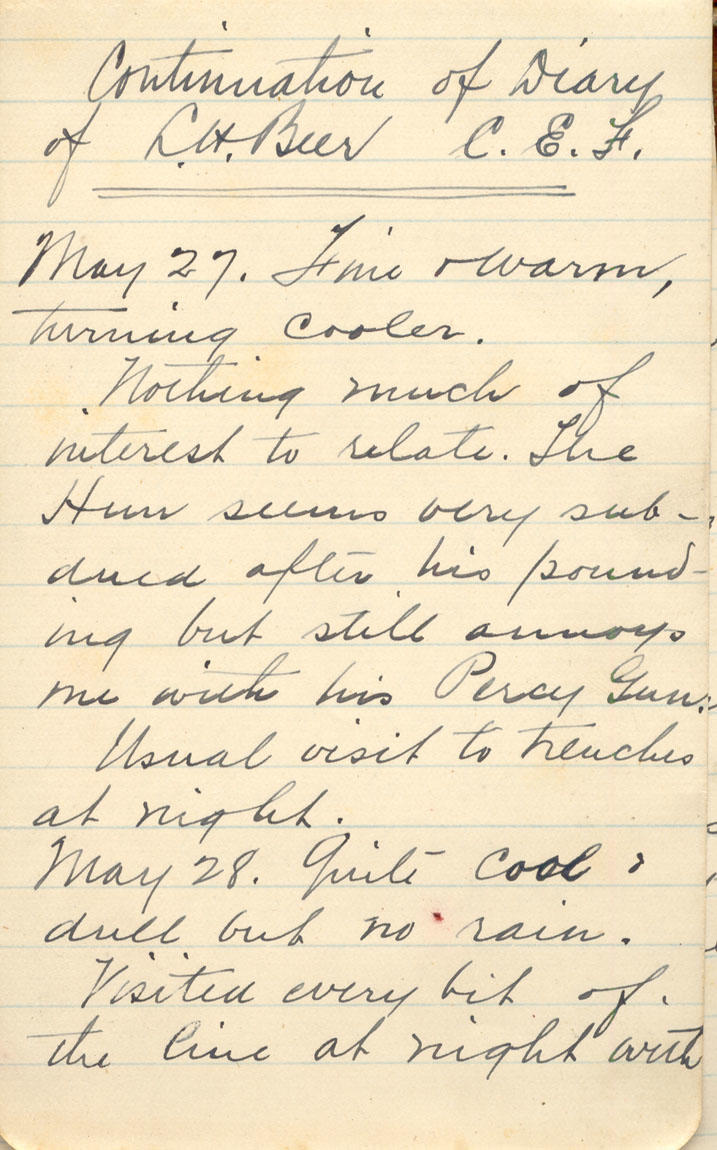 Continuation of Diary
of L.H. Beer C. E. F.
May 27. Fine & warm,
turning cooler.
Nothing much of
interest to relate. The
Hun seems very sub-
dued after his pound-
ing but still annoys
me with his Percy Gun.
Usual visit to trenches
at night.
May 28. Quite cool &
dull but no rain.
Visited every bit of
the line at night with